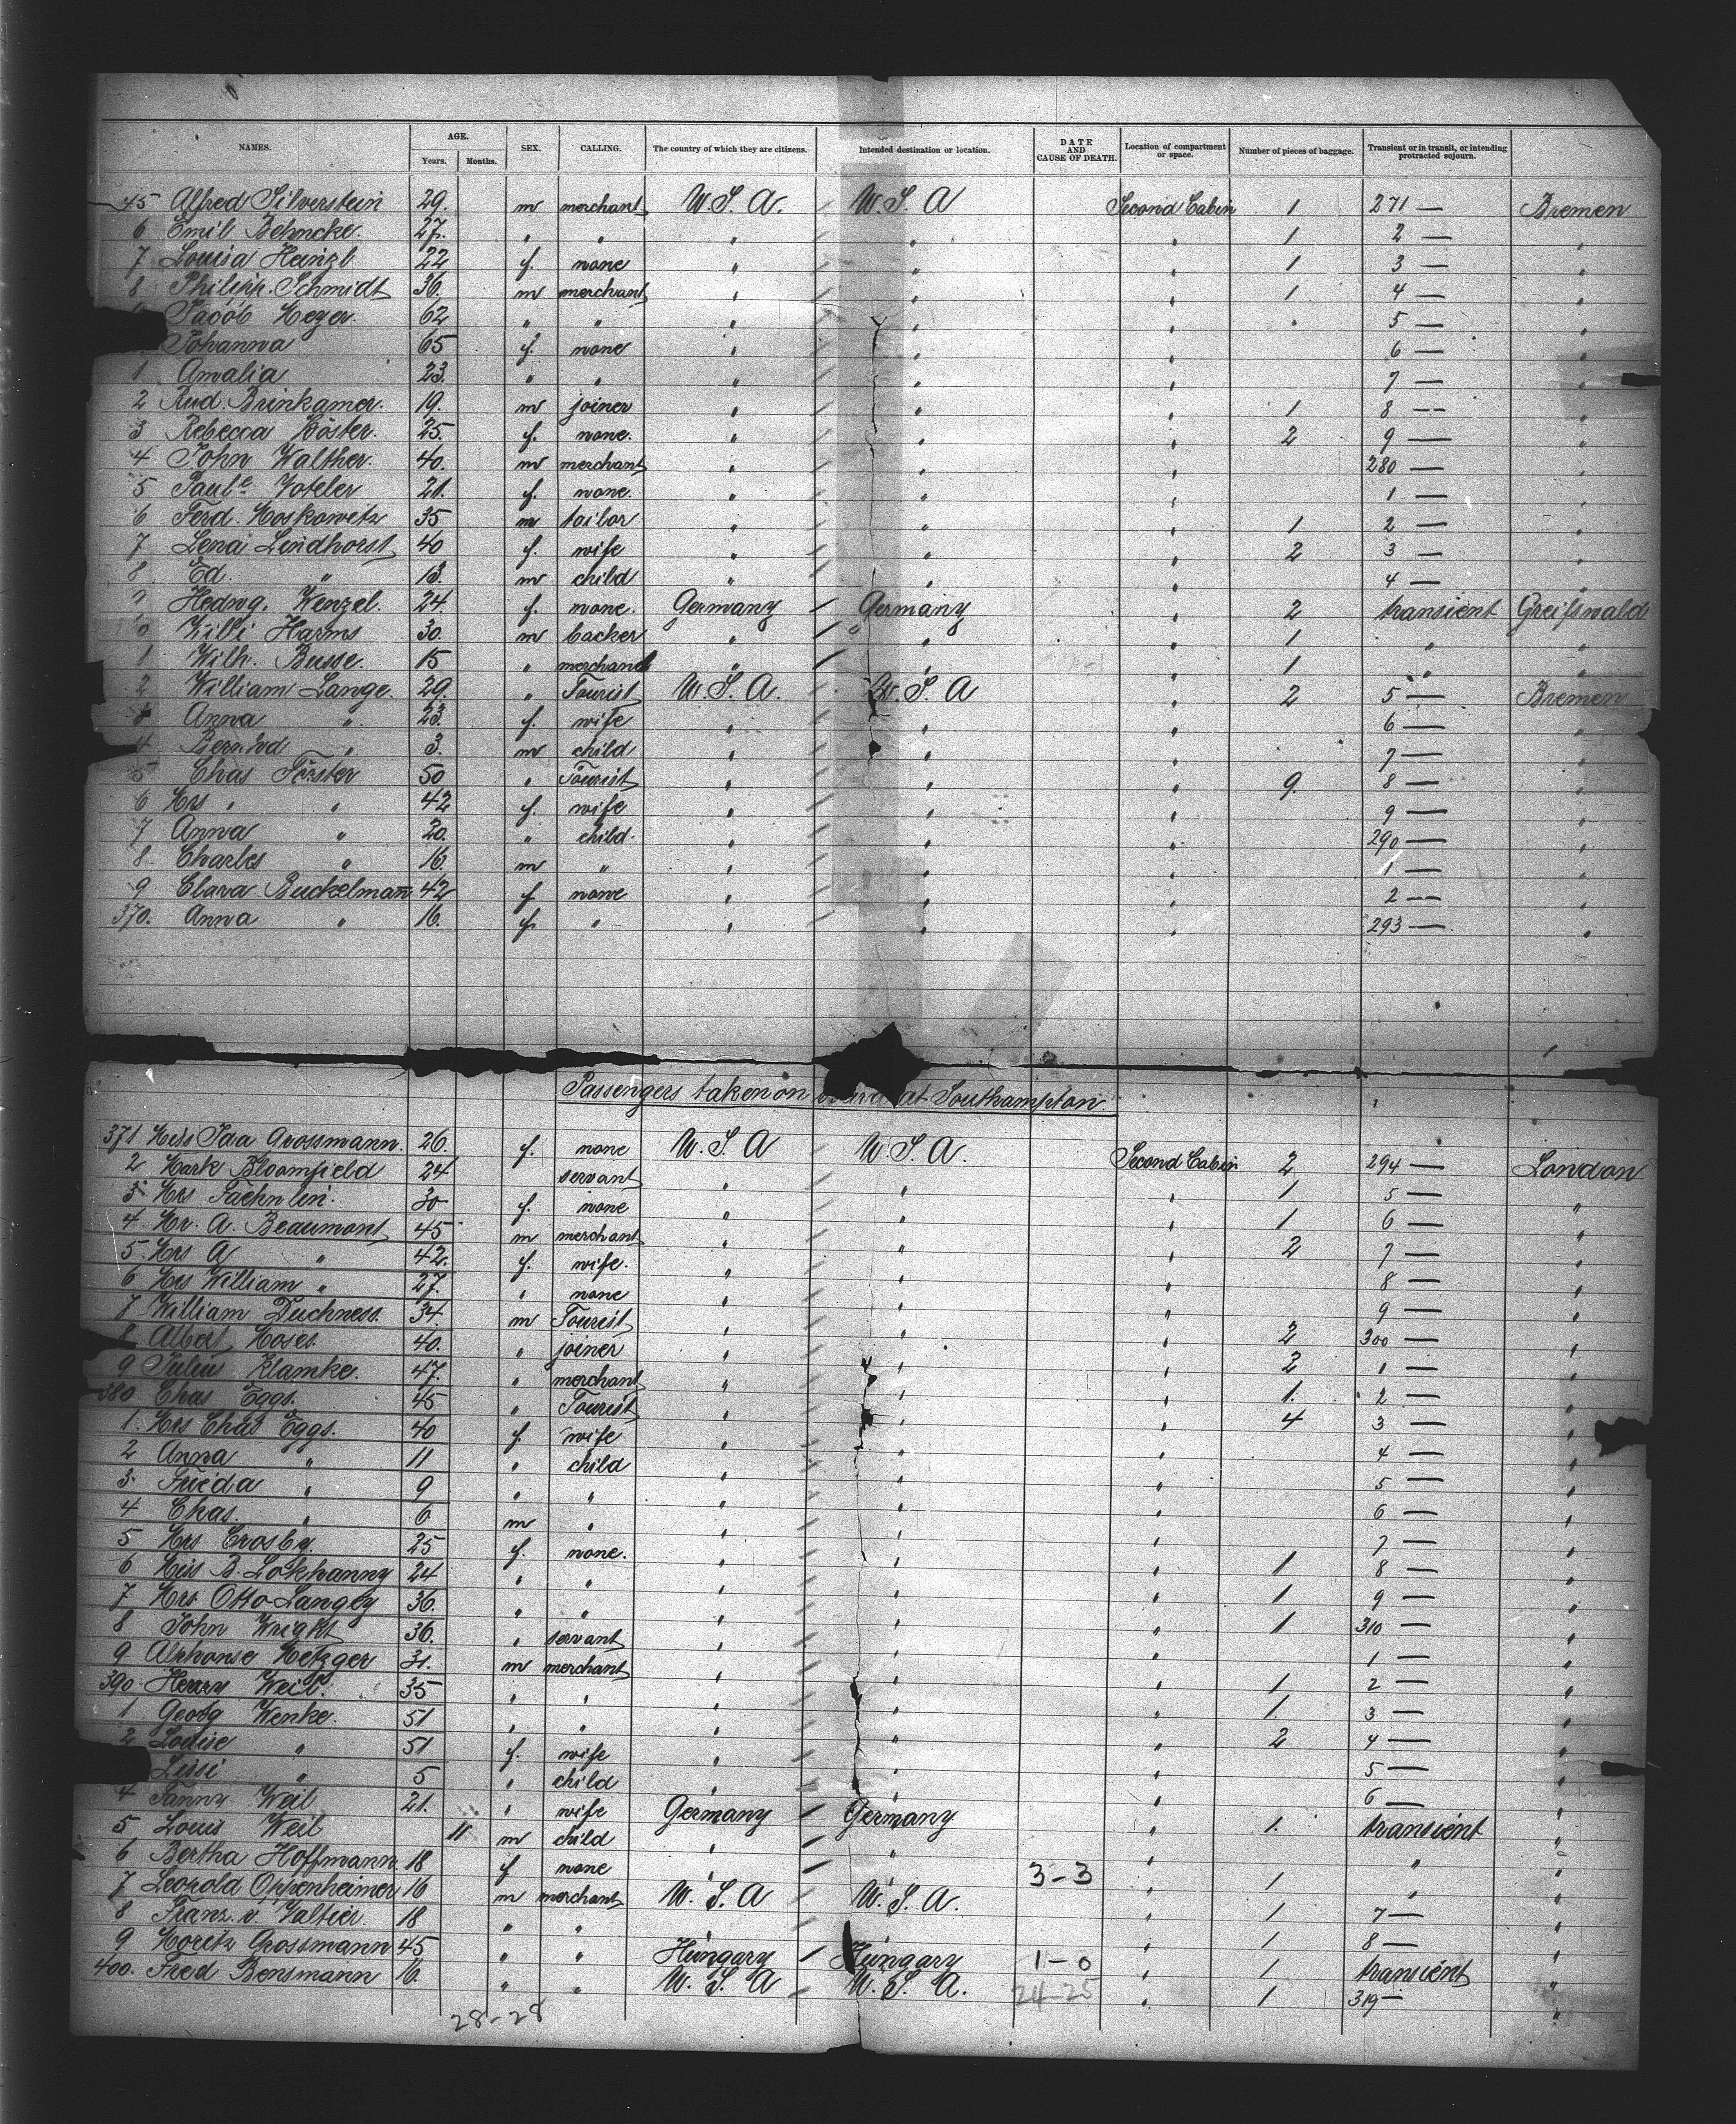 NAMES. AGE. Years. Months. SEX. CALLING. The country of which they are citizens. Intended destination or location. DATE AND CAUSE OF DEATH. Location of compartment or space. Number of pieces of baggage. Transient or in transit, or intending protracted sojourn.
45 Alfred Silverstein 29. m merchant U.S.A. U.S.A Second Cabin 1 271 — Bremen
6 Emil Behncke. 27. " " " " " 1 2 — "
7 Louisa Heinzl 22 f. none " " " 1 3 — "
8 Philipp. Schmidt 36. m merchant " " " 1 4 — "
Jacob Meyer. 62 " " " " " " 5 — "
Johanna 65 f. none " " " 6 — "
1 Amalia 23. " " " " " 7 — "
2 Rud. Brinkamer. 19. m joiner " " " 1 8 — "
3 Rebecca Köster. 25. f. none. " " " 2 9 — "
4 John Walther. 40. m merchant " " " 280 — "
5 Paule Voteler 21. f. none. " " " 1 — "
6 Ferd. Moskowitz 35 m tailor " " " 1 2 — "
7 Lena Lindhorst 40 f. wife " " " 2 3 — "
8 Ed. " 13. m child " " " 4 — "
Hedwg. Wenzel. 24. f. none. Germany / Germany " 2 transient Greifswald
Willi Harms 30. m backer " / " " 1 " "
1 Wilh. Busse. 15 " merchant " / " " 1 " "
2 William Lange. 29. " Tourist U.S.A. U.S.A " 2 5 — Bremen
3 Anna " 23. f. wife " " " 6 — "
4 Bernhd " 3. m child " " " 7 — "
5 Chas Förster 50 " Tourist " " " 9. 8 — "
6 Mrs " " 42 f. wife " " " 9 — "
7 Anna " 20. " child. " " " 290 — "
8. Charles " 16. m " " " " 1 — "
9 Clara Buckelmann 42 f none " " " 2 — "
370. Anna " 16. f. " " " " 293 — "
Passengers taken on board at Southampton.
371 Miss Ida Grossmann. 26. f. none U.S.A U.S.A. Second Cabin 2 294 — London
2 Mark Bloomfield 24 servant " " " 1 5 — "
3 Mrs Faehnlin. 30 f. none " " " 1 6 — "
4. Mr. A. Beaumont 45 m merchant " " " 2 7 — "
5. Mrs A " 42. f. wife. " " " 8 — "
6 Mrs William " 27. " none " " " 9 — "
7 William Duchness. 34. m Tourist " " " 2 300 — "
8 Albert Moses. 40. " joiner " " " 2 1 — "
9 Julius Klamke. 47. " merchant " " " 1. 2 — "
380 Chas Eggs. 45 " Tourist " " " 4 3 — "
1. Mrs Chas Eggs. 40 f. wife " " " 4 — "
2 Anna " 11 " child " " " 5 — "
3. Frieda " 9 " " " " " 6 — "
4 Chas. " 6 m " " " " 7 — "
5 Mrs Crosby. 25 f. none. " " " 1 8 — "
6 Miss B. Lokhanny 24 " " " " " 1 9 — "
7 Mrs Otto Langey 36. " " " " " 1 310 — "
8 John Wright 36. " servant " " " 1 — "
9 Alphonse Metzger 31. m merchant " " " 1 2 — "
390. Henry Weil. 35 " " " " " 1. 3 — "
1 Georg Wenke. 51 " " " " " 2 4 — "
2 Louise " 51 f. wife " " " 5 — "
Lissi " 5 " child " " " 6 — "
4 Fanny Weil 21. " wife Germany / Germany " 1. transient "
5 Louis Weil 11 m child " / " " " "
6 Bertha Hoffmann. 18 f none " / " 3-3 " 1 " "
7 Leopold Oppenheimer 16 m merchant U.S.A U.S.A. " 1 7 — "
8 Franz. v. Valtier. 18 " " " " " 1 8 — "
9 Moritz Grossmann 45 " " Hungary / Hungary 1-0 " 1 transient "
400. Fred Bensmann 16. " " U.S.A U.S.A. 24-25 " 1 319 — "
28-28